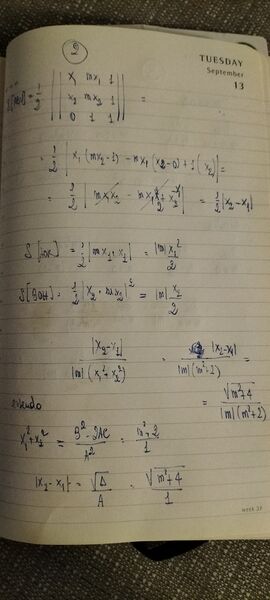 2
TUESDAY
September
13
= 1/2 || x₁ mx₁ 1 | x₂ mx₂ 1 | 0 1 1 || =
= 1/2 | x₁ (mx₂-1) - mx₁ (x₂-0) + 1 (x₂) | =
= 1/2 | mx₁x₂ - mx₁x₂ + x₂ - x₁ | = 1/2 |x₂-x₁|
= 1/2 |mx₁·x₁| = |m|x₁²/2
= 1/2 |x₂·mx₂| = |m|x₂²/2
|x₂-x₁| / |m|(x₁²+x₂²) = |x₂-x₁| / |m|(m²+2)
= √m²+4 / |m|(m²+2)
x₁²+x₂² = B²-2AC / A² = m²+2 / 1
|x₂-x₁| = √Δ / A = √m²+4 / 1
WEEK 37